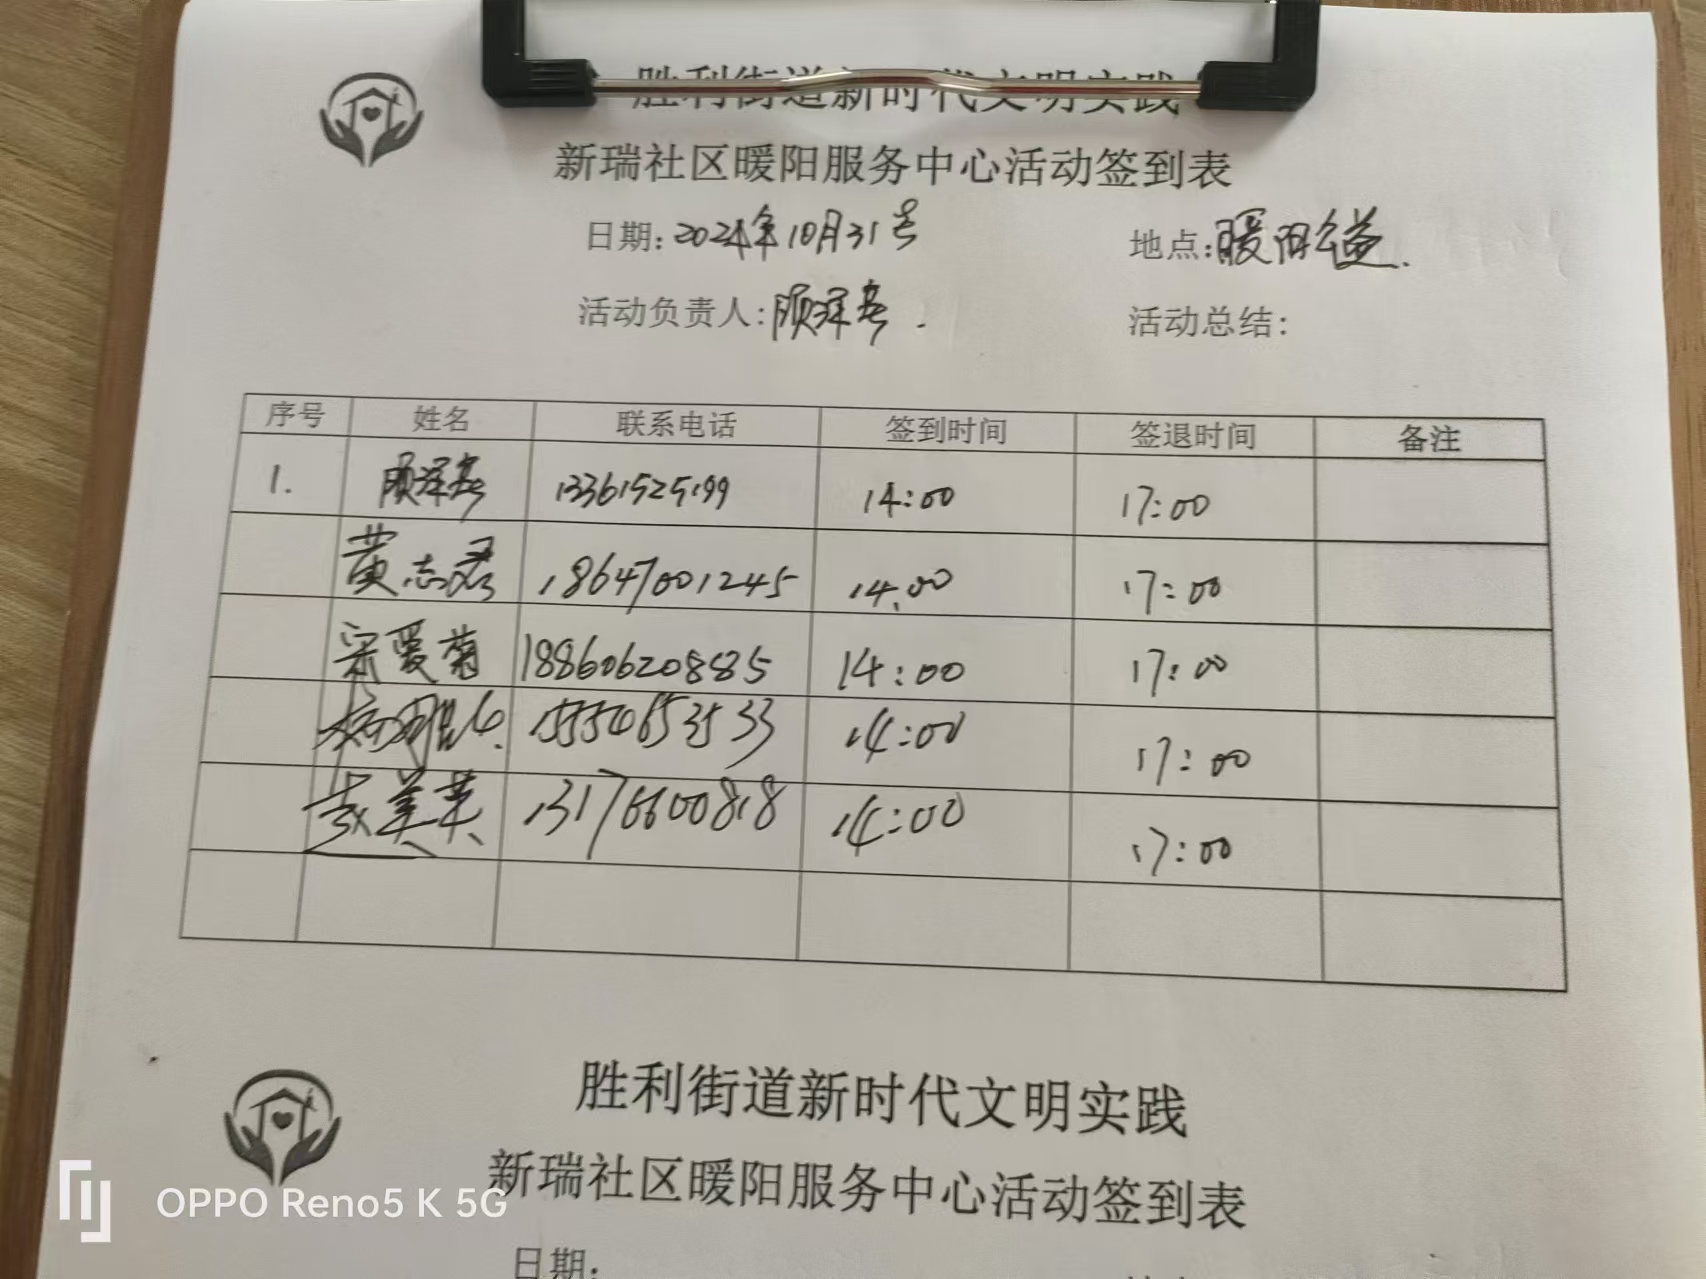 胜利街道新时代文明实践
新瑞社区暖阳服务中心活动签到表
日期: 2024年10月31号 地点: 暖阳公益.
活动负责人: 顾泽 活动总结:
序号 姓名 联系电话 签到时间 签退时间 备注
1. 顾泽 13361525199 14:00 17:00
黄志君 18647001245 14:00 17:00
宋爱菊 18860620885 14:00 17:00
15554653533 14:00 17:00
美英 13176600818 14:00 17:00
胜利街道新时代文明实践
新瑞社区暖阳服务中心活动签到表
日期:
OPPO Reno5 K 5G